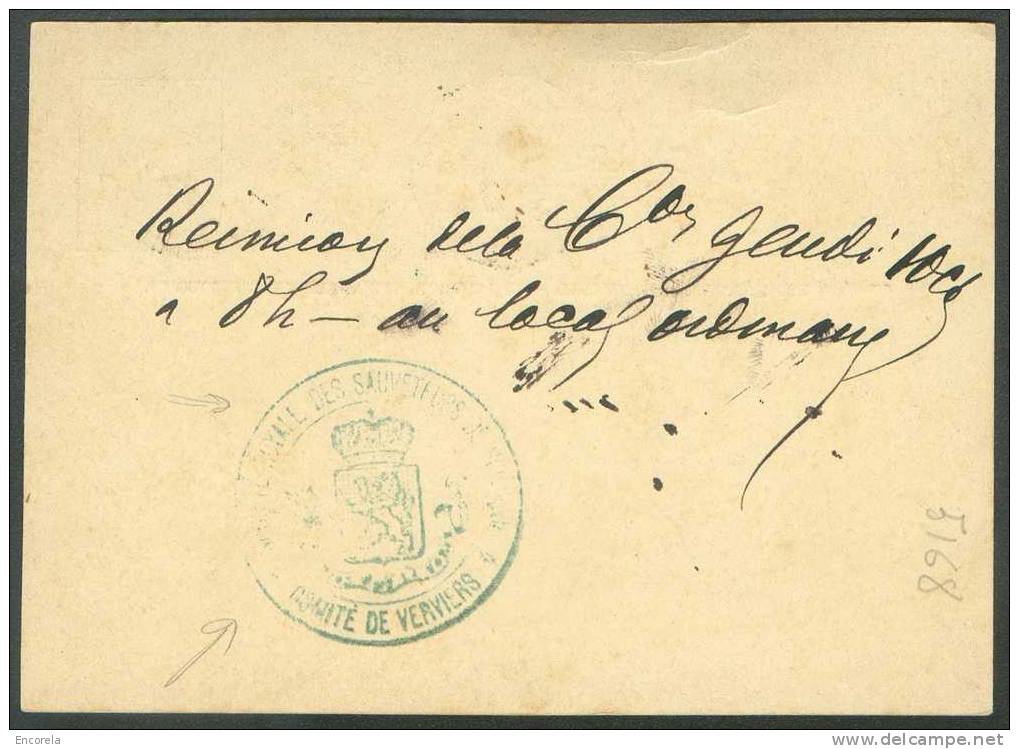 Reunion de la Con jeudi 10 ct
a 8h — au local ordinaire
ROYALE DES SAUVETEURS DE
COMITÉ DE VERVIERS
5168
Encorela
www.delcampe.net